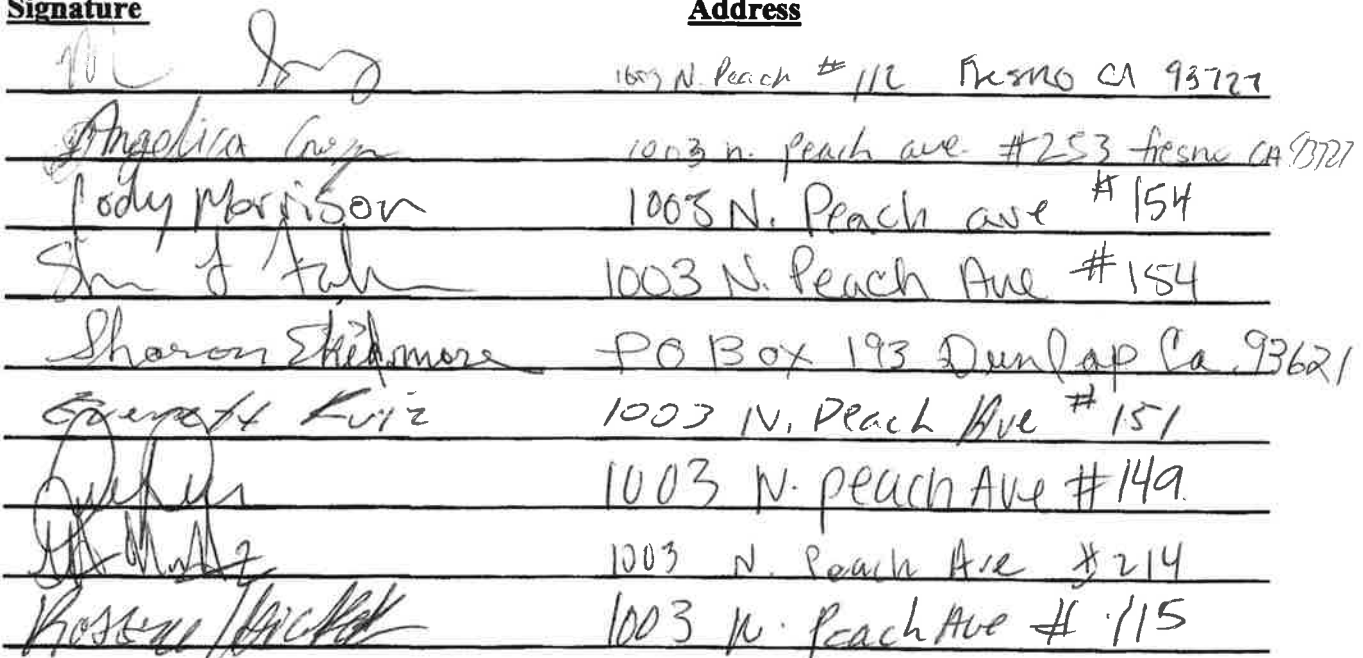 Signature Address
1003 N. Peach # 112 Fresno CA 93727
Angelica 1003 n. peach ave. #253 fresno CA 93727
Jody Morrison 1003 N. Peach ave # 154
1003 N. Peach Ave # 154
Sharon Skidmore PO Box 193 Dunlap Ca. 93621
Everett Ruiz 1003 N. Peach Ave # 151
1003 N. peach Ave # 149.
1003 N. Peach Ave # 214
1003 N. Peach Ave # 115